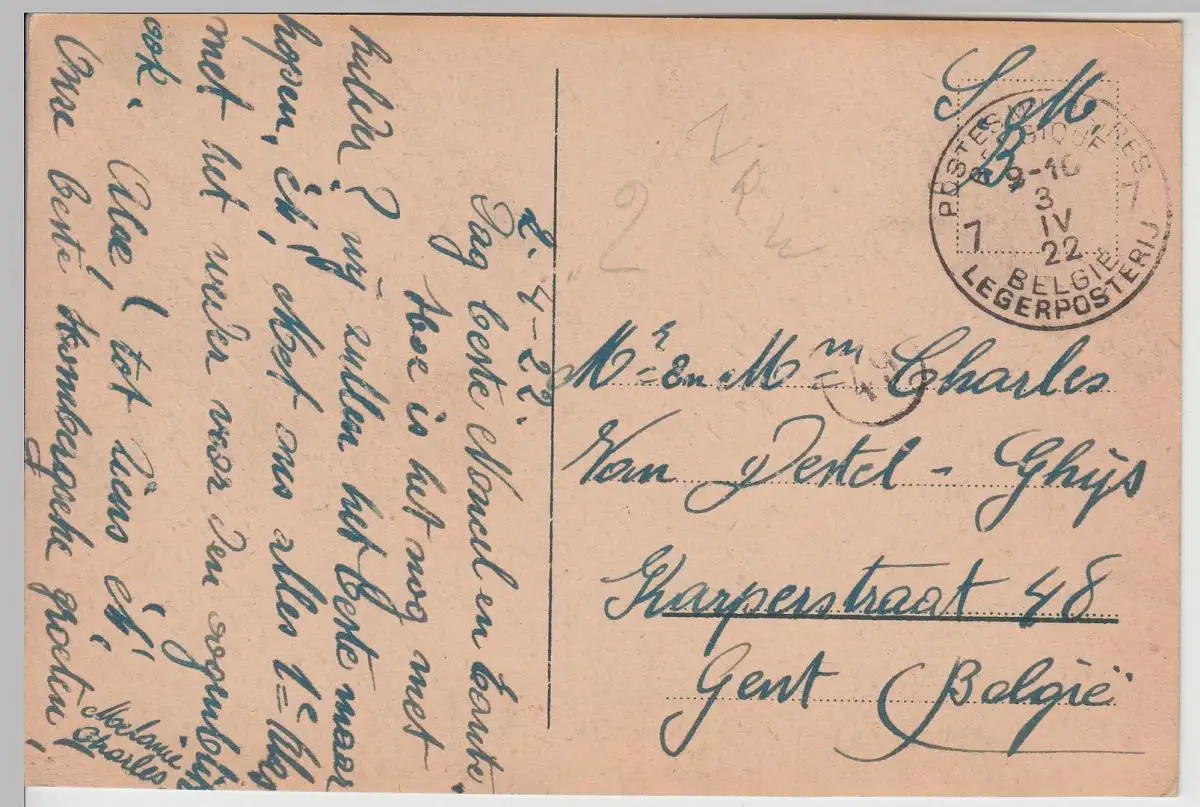 2. 4 - 22.
Dag beste Noncul en tante.
Hoe is het nog met
hulein? wij zullen het beste maar
hopen, eh! Met ons alles 1e
met het weder voor den oogenblik
ook. Alae, (tot ziens eh!
Onze beste, groeten!
Melanie
Charles
S. M
B,
POSTES MILITAIRES
BELGIQUE
9-10
3
IV
22
7 7
BELGIË
LEGERPOSTERIJ
2
Mr = En Mm Charles
Van Pestel - Ghijs
Karperstraat 48
Gent België